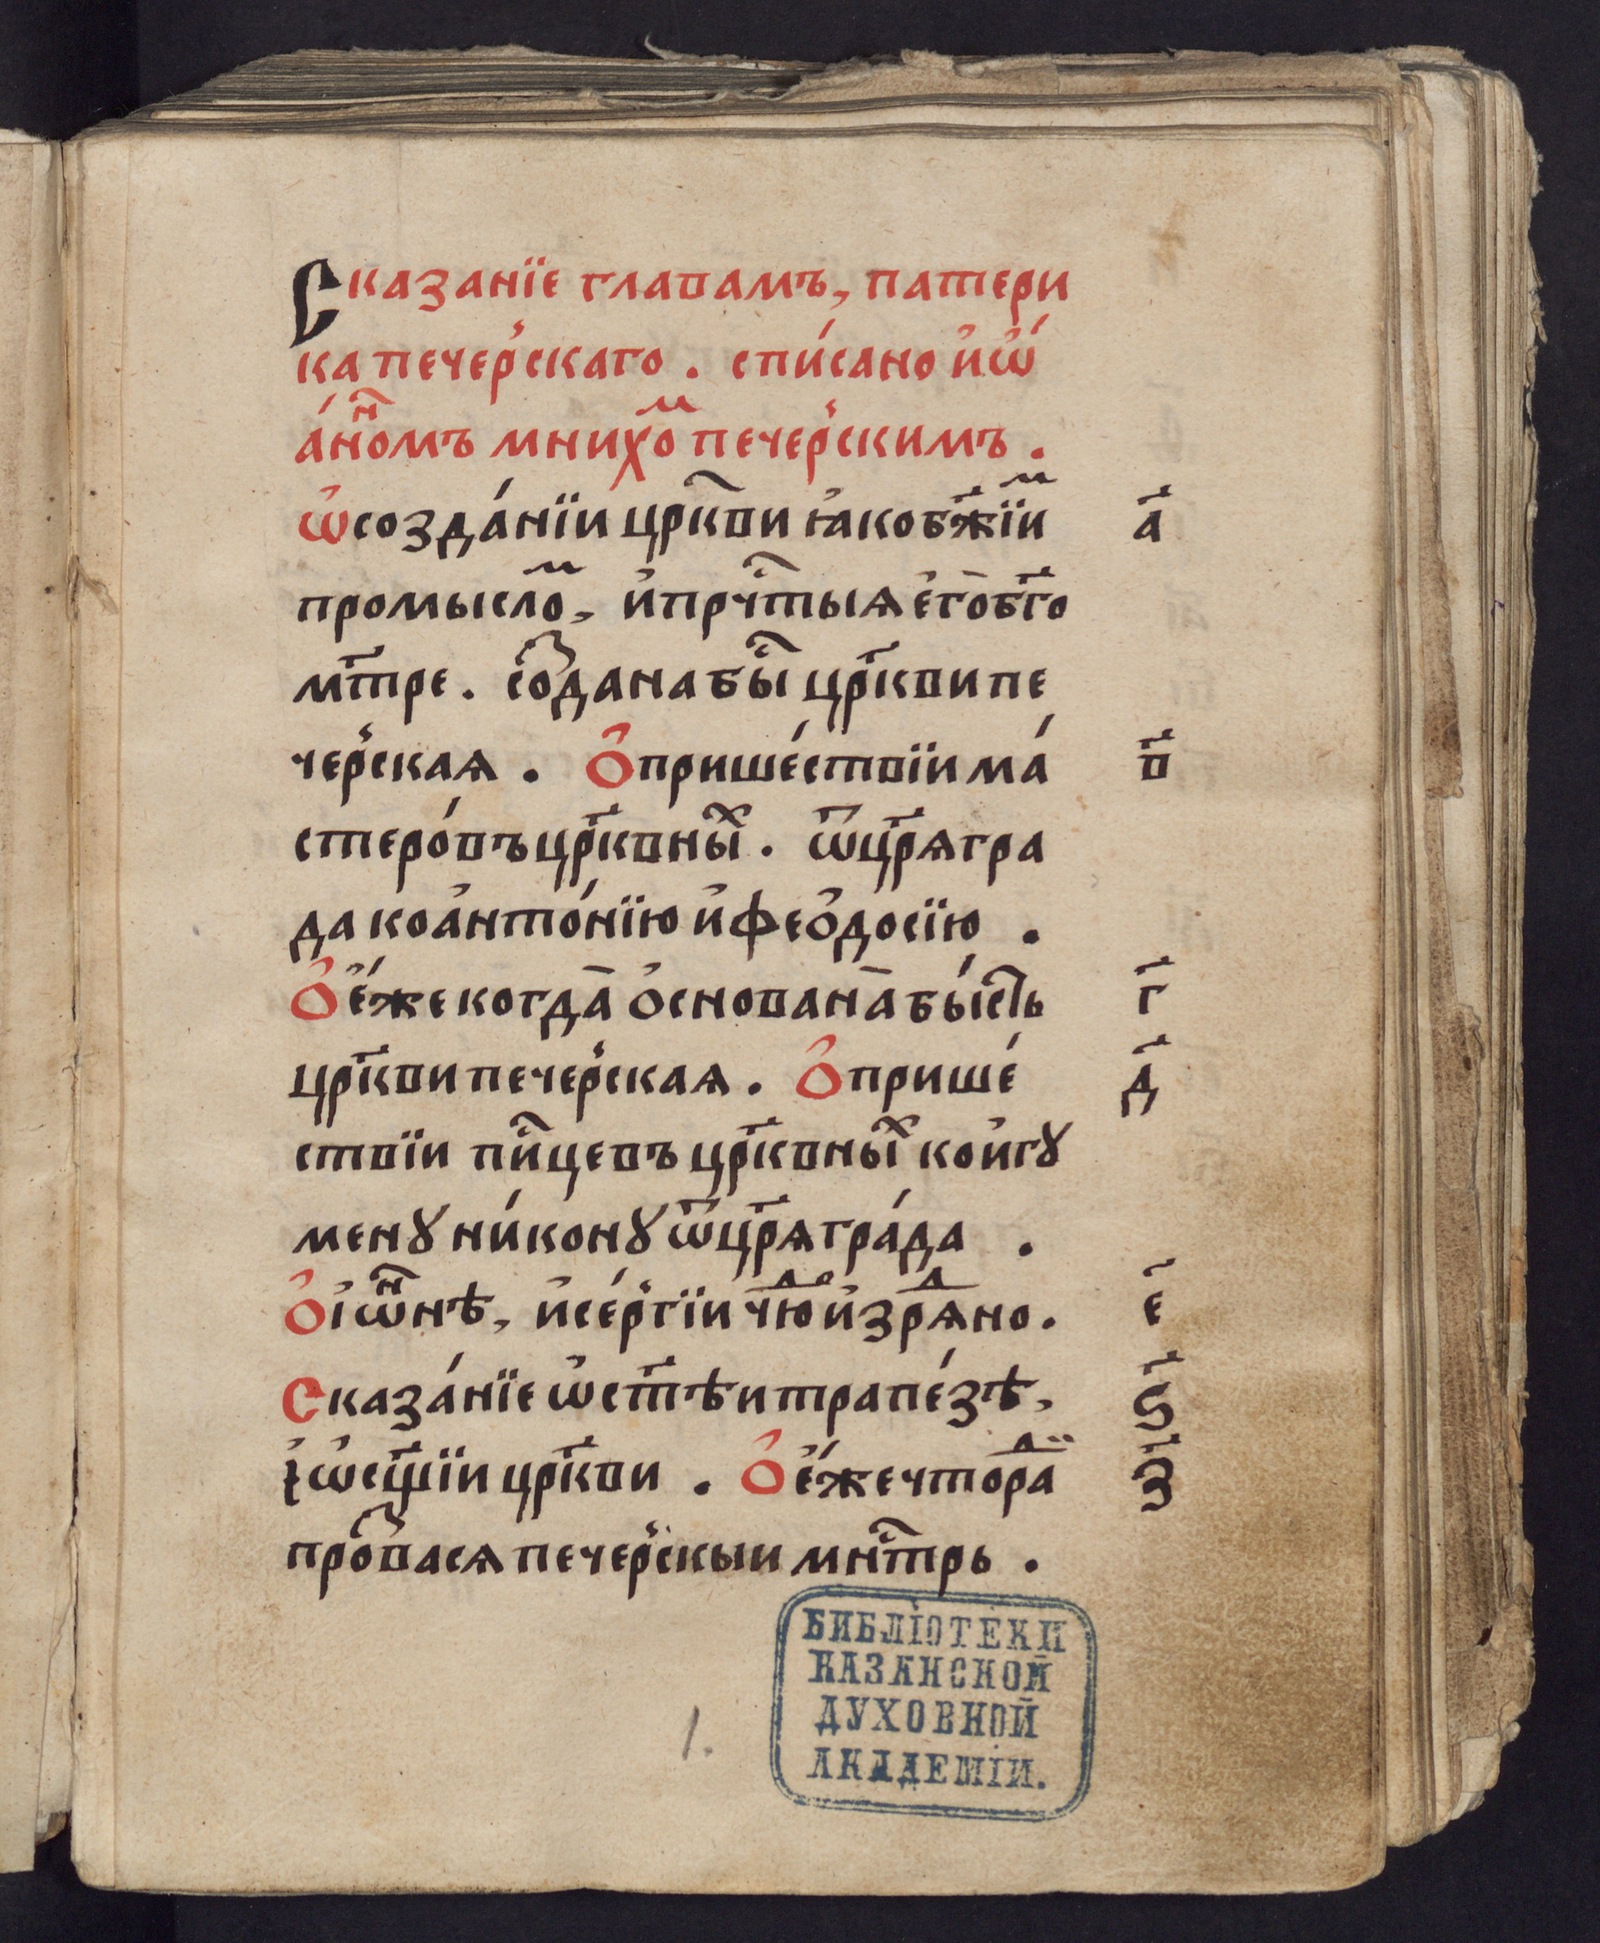 Сказанїе главамъ, патери
ка печер҆скаго. спи́сано и҆ѡ҆́
а́нⷩ҇омъ мнихоⷨ печер҆скимъ.
ѡ҆создѧ́нїи црк҃ви ꙗ҆ко бж҃їиⷨ а҃
промысⷧоⷨ, и҆прчⷭ҇тыѧ є҆го̀ б҃го
мт҃ре. соⷥдана бы́ⷭ цр҃кви пе
чер҆скаѧ. Ѻ҆пришє́ствїи ма́ в҃
стеро́въ цр҃квныⷯ. ѿ цр҃ѧгра
да ко а҆нто́нїю и҆ феѻ҆досїю.
Ѻ҆ є҆́же когда̀ ѻ҆снована̀ бы́сть г҃
цр҃кви печер҆скаѧ. Ѻ҆прише́ д҃
ствїи пиⷭ҇цевъ цр҃квныⷯ ко и҆гꙋ
менꙋ ни́конꙋ ѿ цр҃ѧгра́да.
Ѻ҆ іѡ҆ⷩ҇нѣ, и҆ се́р҆гїи чюⷣⷪ и҆зрѧⷣно. е҃
Сказа́нїе ѡ҆ ст҃ѣи трапе́зѣ, ѕ҃
и҆ ѡ҆сщ҃їи цр҃кви. Ѻ҆ є҆́же что раⷣ з҃
проⷥвасѧ печер҆скыи мнⷭ҇трь.
1.
БИБЛІОТЕКИ
КАЗАНСКОЙ
ДУХОВНОЙ
АКАДЕМІИ.